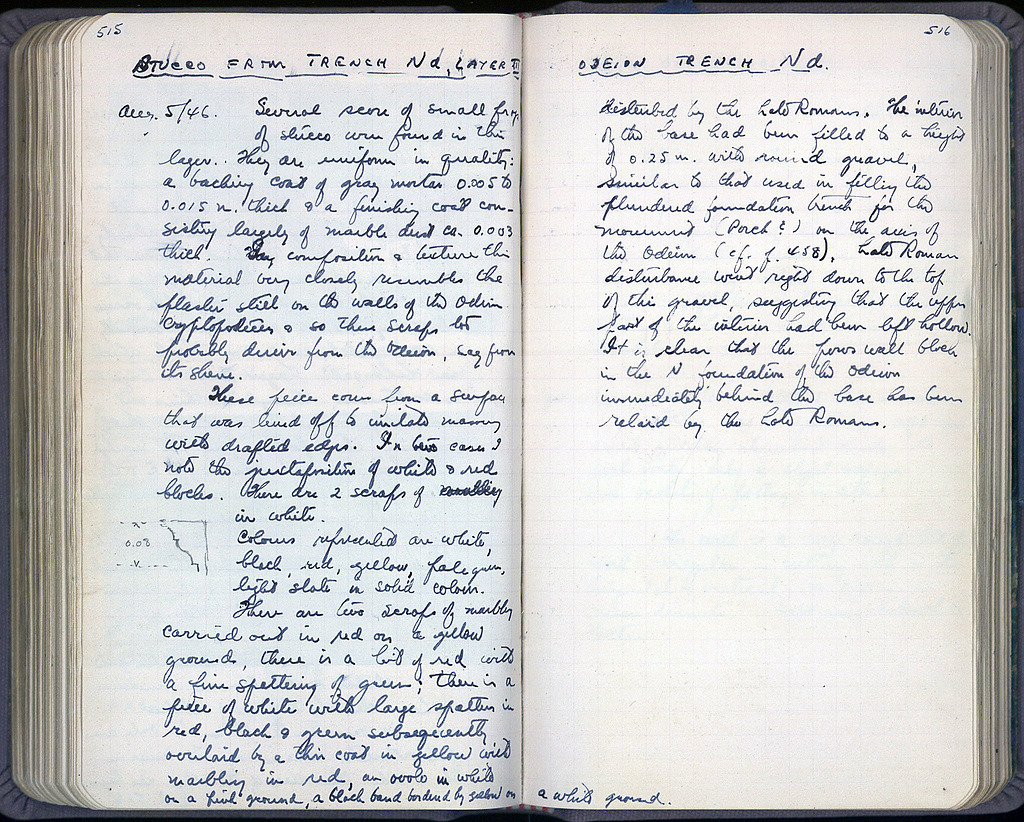 515
STUCCO FROM TRENCH Nd, LAYER III
Aug. 5/46. Several score of small frag.
of stucco were found in this
layer. They are uniform in quality:
a backing coat of gray mortar 0.005 to
0.015 m. thick & a finishing coat con-
sisting largely of marble dust ca. 0.003
thick. In composition & texture this
material very closely resembles the
plaster still on the walls of the Odeion
Cryptoporticus & so these scraps
probably derive from the Odeion, say from
its skene.
These piece come from a surface
that was lined off to imitate masonry
with drafted edges. In two cases I
note the juxtaposition of white & red
blocks. There are 2 scraps of
in white.
0.08
Colours represented are white,
black, red, yellow, pale green,
light slate in solid colour.
There are two scraps of marbling
carried out in red on a yellow
ground, there is a bit of red with
a fine spattering of green; there is a
piece of white with large spatters in
red, black & green subsequently
overlaid by a thin coat in yellow with
marbling in red, an ovolo in white
on a pink ground, a black band bordered by yellow on a white ground.
516
ODEION TRENCH Nd.
disturbed by the Late Romans. The interior
of the base had been filled to a height
of 0.25 m. with round gravel,
similar to that used in filling the
plundered foundation trench for the
monument (Porch?) on the axis of
the Odeion (cf. p. 458). Late Roman
disturbance went right down to the top
of this gravel, suggesting that the upper
part of the interior had been left hollow.
It is clear that the poros wall block
in the N foundation of the Odeion
immediately behind the base has been
relaid by the Late Romans.